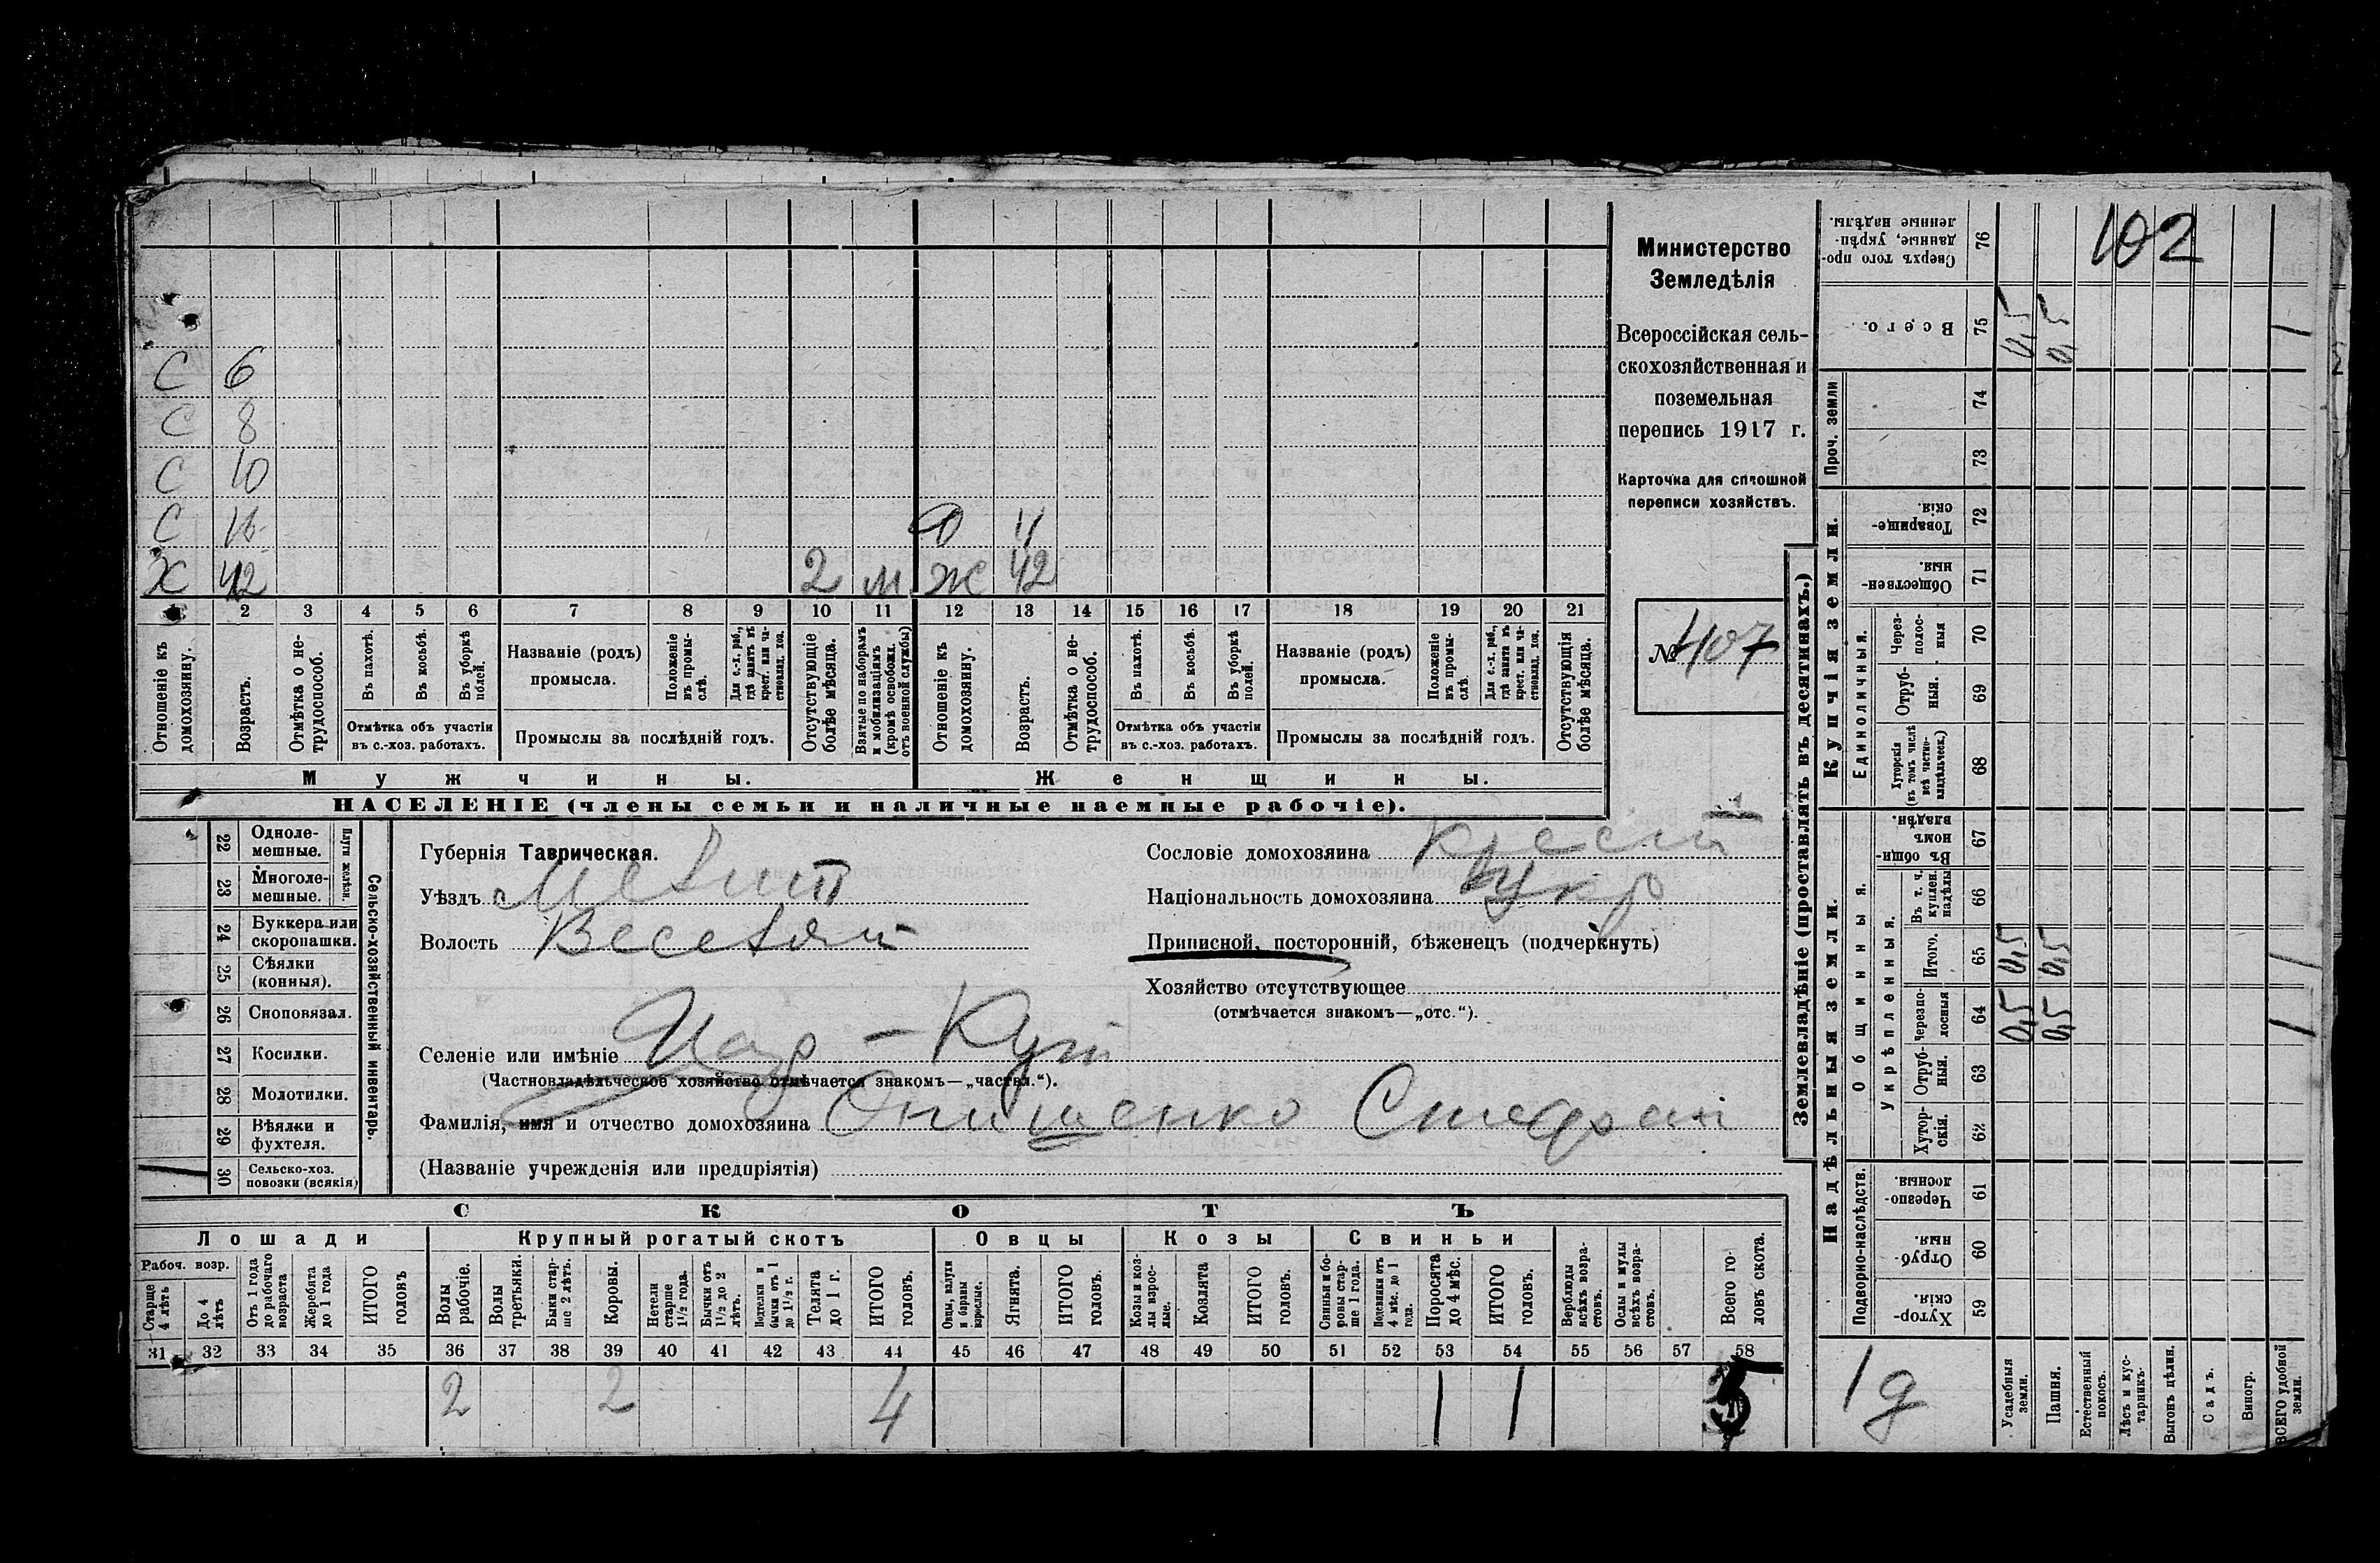 102
С 6
С 8
С 10
С 16
Д 4
Х 42 2 м ж 42
1 2 3 4 5 6 7 8 9 10 11 12 13 14 15 16 17 18 19 20 21
Отношеніе къ домохозяину.
Возрастъ.
Отмѣтка о нетрудоспособ.
Въ пахотѣ.
Въ косьбѣ.
Въ уборкѣ полей.
Отмѣтка объ участіи
въ с.-хоз. работахъ.
Названіе (родъ)
промысла.
Положеніе въ промыслѣ.
Для с.-х. раб., гдѣ занятъ въ крест. или частновлад. хоз.
Промыслы за послѣдній годъ.
Отсутствующіе болѣе мѣсяца.
Взятые по наборамъ и мобилизаціямъ (кромѣ освобожд. отъ военной службы)
Отношеніе къ домохозяину.
Возрастъ.
Отмѣтка о нетрудоспособ.
Въ пахотѣ.
Въ косьбѣ.
Въ уборкѣ полей.
Отмѣтка объ участіи
въ с.-хоз. работахъ.
Названіе (родъ)
промысла.
Положеніе въ промыслѣ.
Для с.-х. раб., гдѣ занята въ крест. или частновлад. хоз.
Промыслы за послѣдній годъ.
Отсутствующія болѣе мѣсяца.
Мужчины. Женщины.
НАСЕЛЕНІЕ (члены семьи и наличные наемные рабочіе).
Министерство
Земледѣлія
Всероссійская сель-
скохозяйственная и
поземельная
перепись 1917 г.
Карточка для сплошной
переписи хозяйствъ.
№ 407
Сельско-хозяйственный инвентарь.
Плуги желѣзн.
22 Одноле-
мешные.
23 Многоле-
мешные.
24 Буккера или
скоропашки.
25 Сѣялки
(конныя).
26 Сноповязал.
27 Косилки.
28 Молотилки.
29 Вѣялки и
фухтеля.
30 Сельско-хоз.
повозки (всякія)
Губернія Таврическая.
Уѣздъ Мелит
Волость Веселян
Сословіе домохозяина крест
Національность домохозяина Укр
Приписной, посторонній, бѣженецъ (подчеркнуть)
Хозяйство отсутствующее
(отмѣчается знакомъ—„отс.“).
Селеніе или имѣніе Чап - Кут
(Частновладѣльческое хозяйство отмѣчается знакомъ—„частвл.“).
Фамилія, имя и отчество домохозяина Онищенко Стефан
(Названіе учрежденія или предпріятія)
СКОТЪ
Лошади Крупный рогатый скотъ Овцы Козы Свиньи
Рабоч. возр.
Старше 4 лѣтъ
До 4 лѣтъ
Отъ 1 года до рабочаго возраста
Жеребята до 1 года
ИТОГО головъ
Волы рабочіе.
Волы третьяки.
Быки старше 2 лѣтъ.
Коровы.
Нетели старше 1½ года.
Бычки отъ 1½ до 2 лѣтъ.
Подтелки и бычки отъ 1 до 1½ г.
Телята до 1 г.
ИТОГО головъ.
Овцы, валухи и бараны взрослые.
Ягнята.
ИТОГО головъ.
Козы и козлы взрослые.
Козлята
ИТОГО головъ.
Свиньи и боровы старше 1 года.
Подсвинки отъ 4 мѣс. до 1 года.
Поросята до 4 мѣс.
ИТОГО головъ.
Верблюды всѣхъ возрастовъ.
Ослы и мулы всѣхъ возрастовъ.
Всего головъ скота.
31 32 33 34 35 36 37 38 39 40 41 42 43 44 45 46 47 48 49 50 51 52 53 54 55 56 57 58
2 2 4 1 1 5
Землевладѣніе (проставлять въ десятинахъ.)
Надѣльныя земли.
Купчія земли.
Проч. земли
Подворно-наслѣдств.
Общинныя.
Укрѣпленныя.
Единоличныя.
Сверхъ того проданные, укрѣпленные надѣлы. 76
Всего. 75 0,5 0,5 1
74
73
Товарищескія. 72
Общественныя. 71
Черезполосныя 70
Отрубныя. 69
Хуторскія (въ томъ числѣ всѣ частновладѣльческ.) 68
Въ общинномъ владѣн. 67
Въ т. ч. куплен. надѣлы 66
Итого. 65 0,5 0,5 1
Черезполосныя 64 0,5 0,5 1
Отрубныя. 63
Хуторскія. 62
Черезполосныя. 61
Отрубныя. 60
Хуторскія. 59
1 д
Усадебныя земли.
Пашня.
Естественный покосъ.
Лѣсъ и кустарникъ.
Выгонъ цѣлин.
Садъ.
Виногр.
ВСЕГО удобной земли.